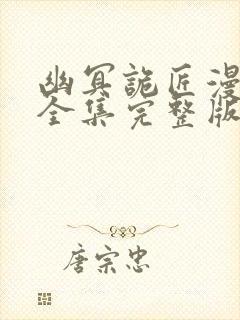 幽冥詭匠漫
全集完整版
唐宗忠